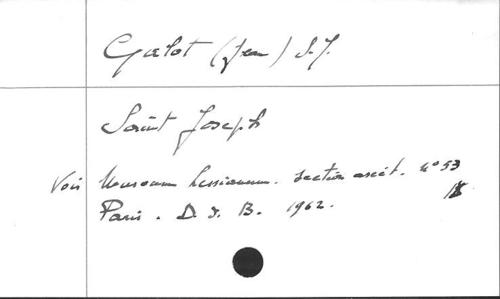 Galot (Jean) S.J.
Saint Joseph
Voir Museum Lessianum. Section ascét. n° 53
Paris. D. d. B. 1962.